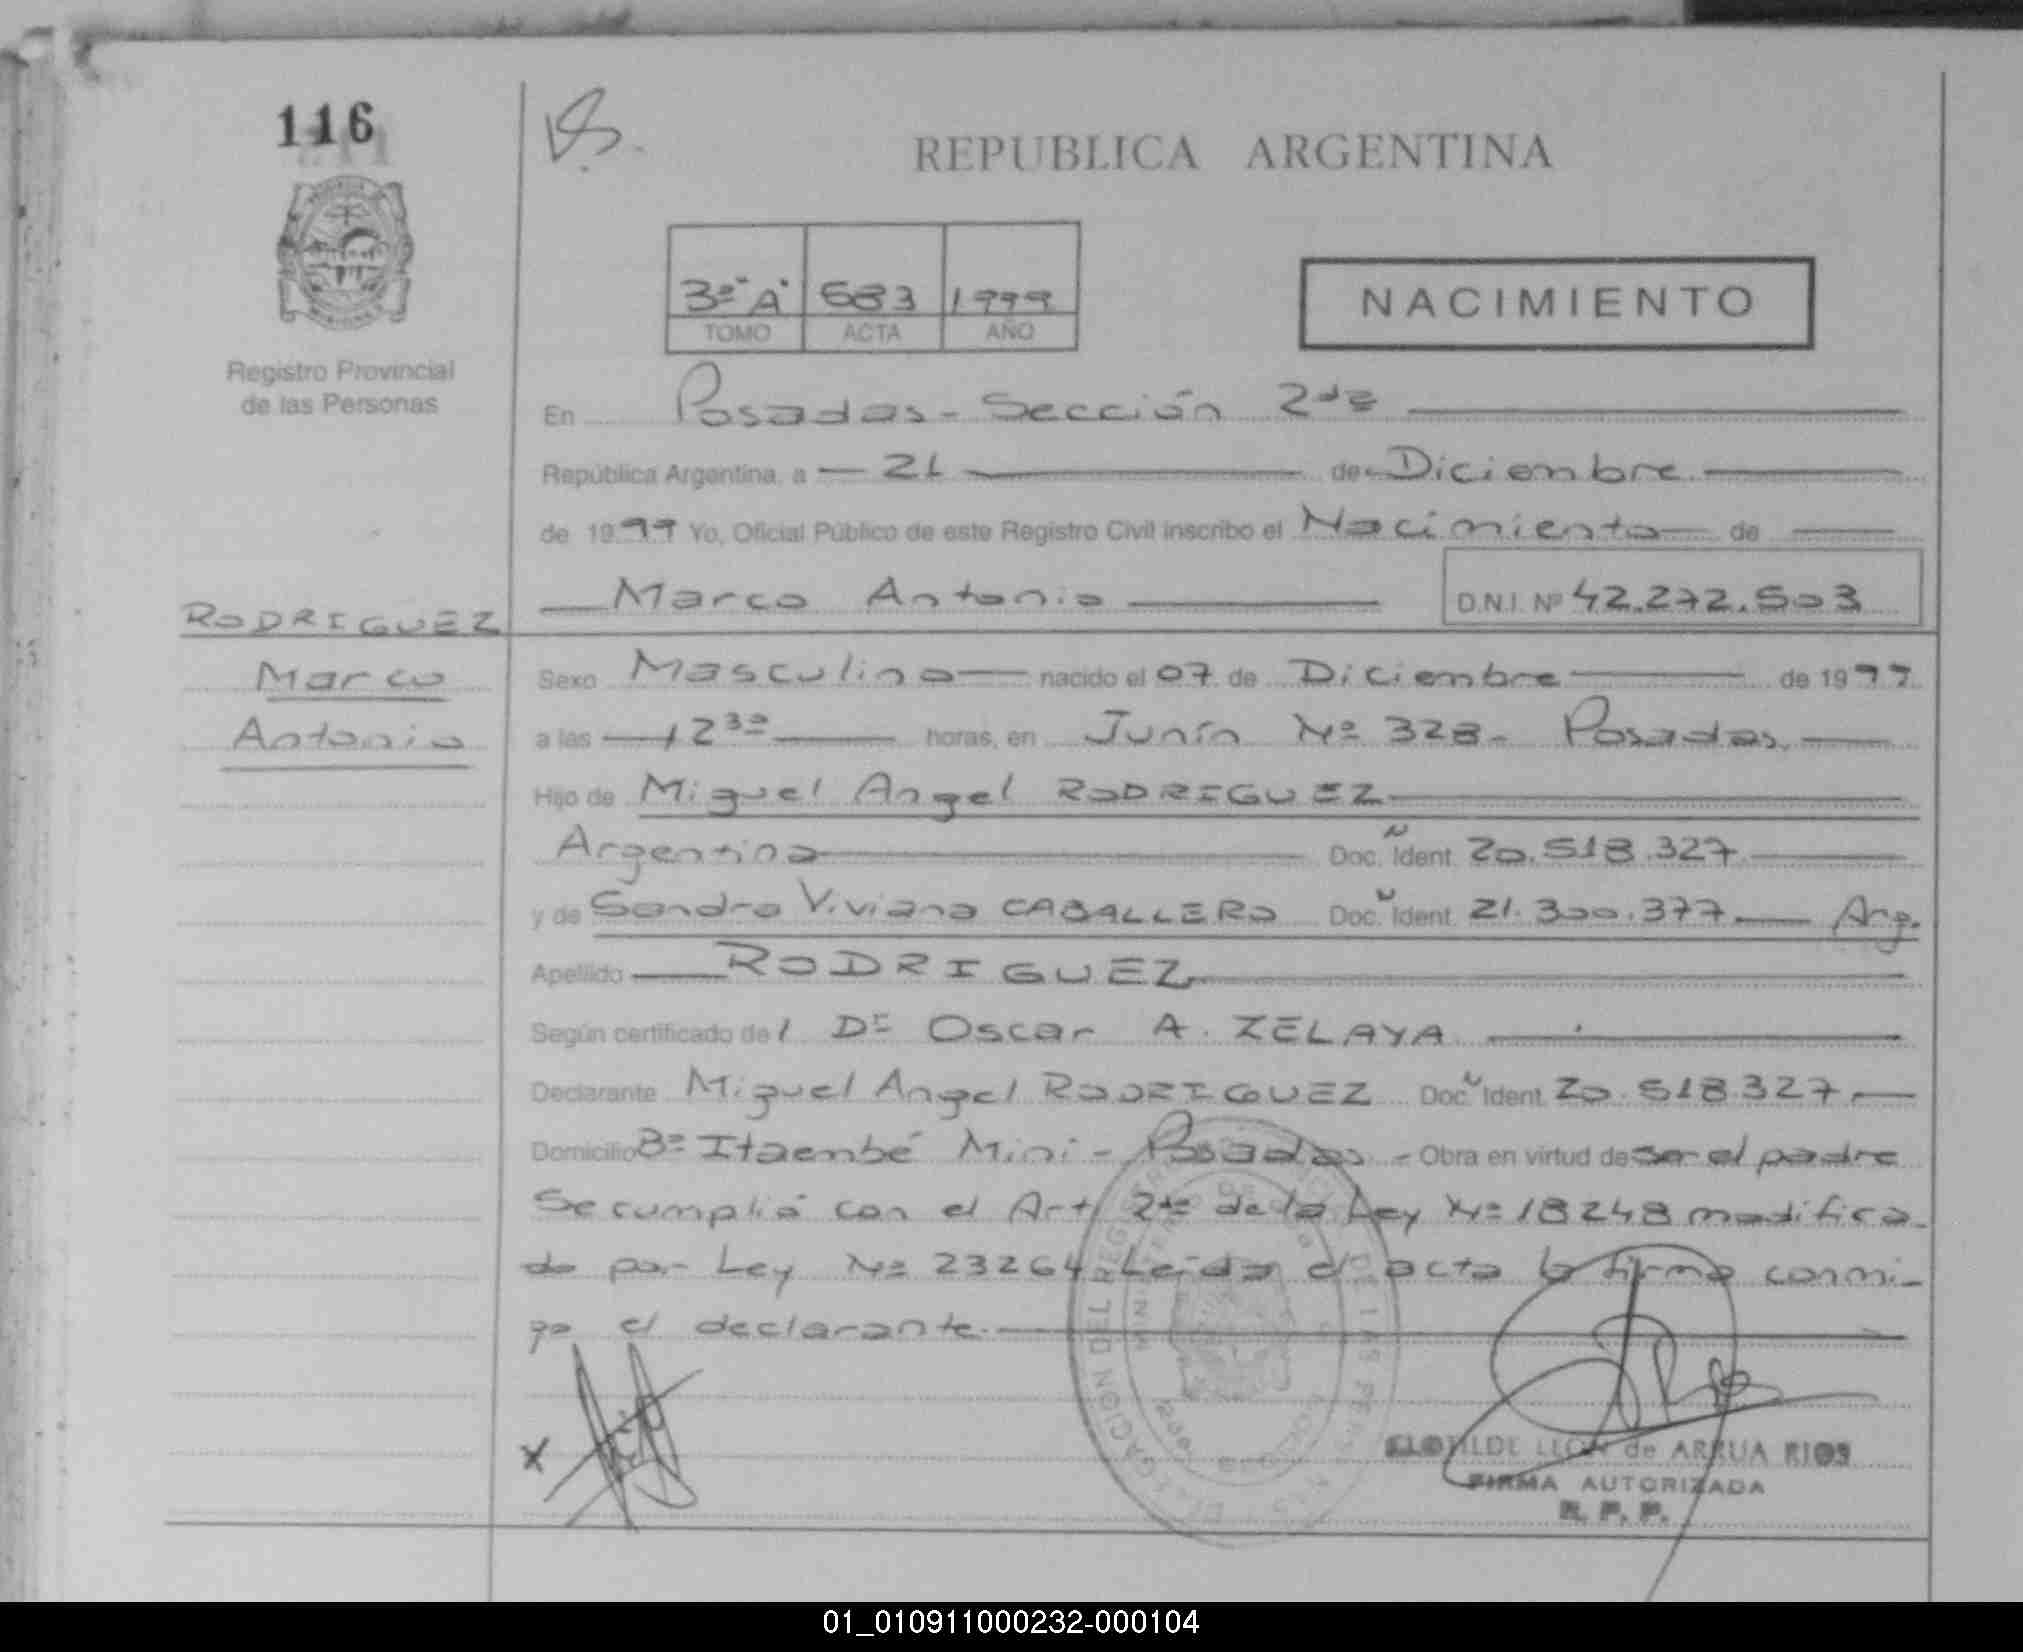 116
REPUBLICA ARGENTINA
3º "A" 683 1999
TOMO ACTA AÑO
NACIMIENTO
Registro Provincial
de las Personas
En Posadas - Sección 2da
República Argentina, a 21 de Diciembre
de 1999 Yo, Oficial Público de este Registro Civil inscribo el Nacimiento de
Marco Antonio D.N.I. Nº 42.272.503
RODRIGUEZ
Marco
Antonio
Sexo Masculino nacido el 07 de Diciembre de 1999
a las 12 30 horas, en Junín Nº 328 - Posadas
Hijo de Miguel Angel RODRIGUEZ
Argentina Doc. Ident. 20.518.327
y de Sandra Viviana CABALLERO Doc. Ident. 21.300.377 Arg.
Apellido RODRIGUEZ
Según certificado del Dr Oscar A. ZELAYA
Declarante Miguel Angel RODRIGUEZ Doc. Ident. 20.518.327
Domicilio Bº Itaembé Mini - Posadas - Obra en virtud de ser el padre
Se cumplió con el Art 2do de la Ley Nº 18248 modifica-
do por Ley Nº 23264 Leída el acta la firma conmi-
go el declarante.
X
CLOTILDE LEON de ARRUA RIOS
FIRMA AUTORIZADA
R. P. P.
01_010911000232-000104